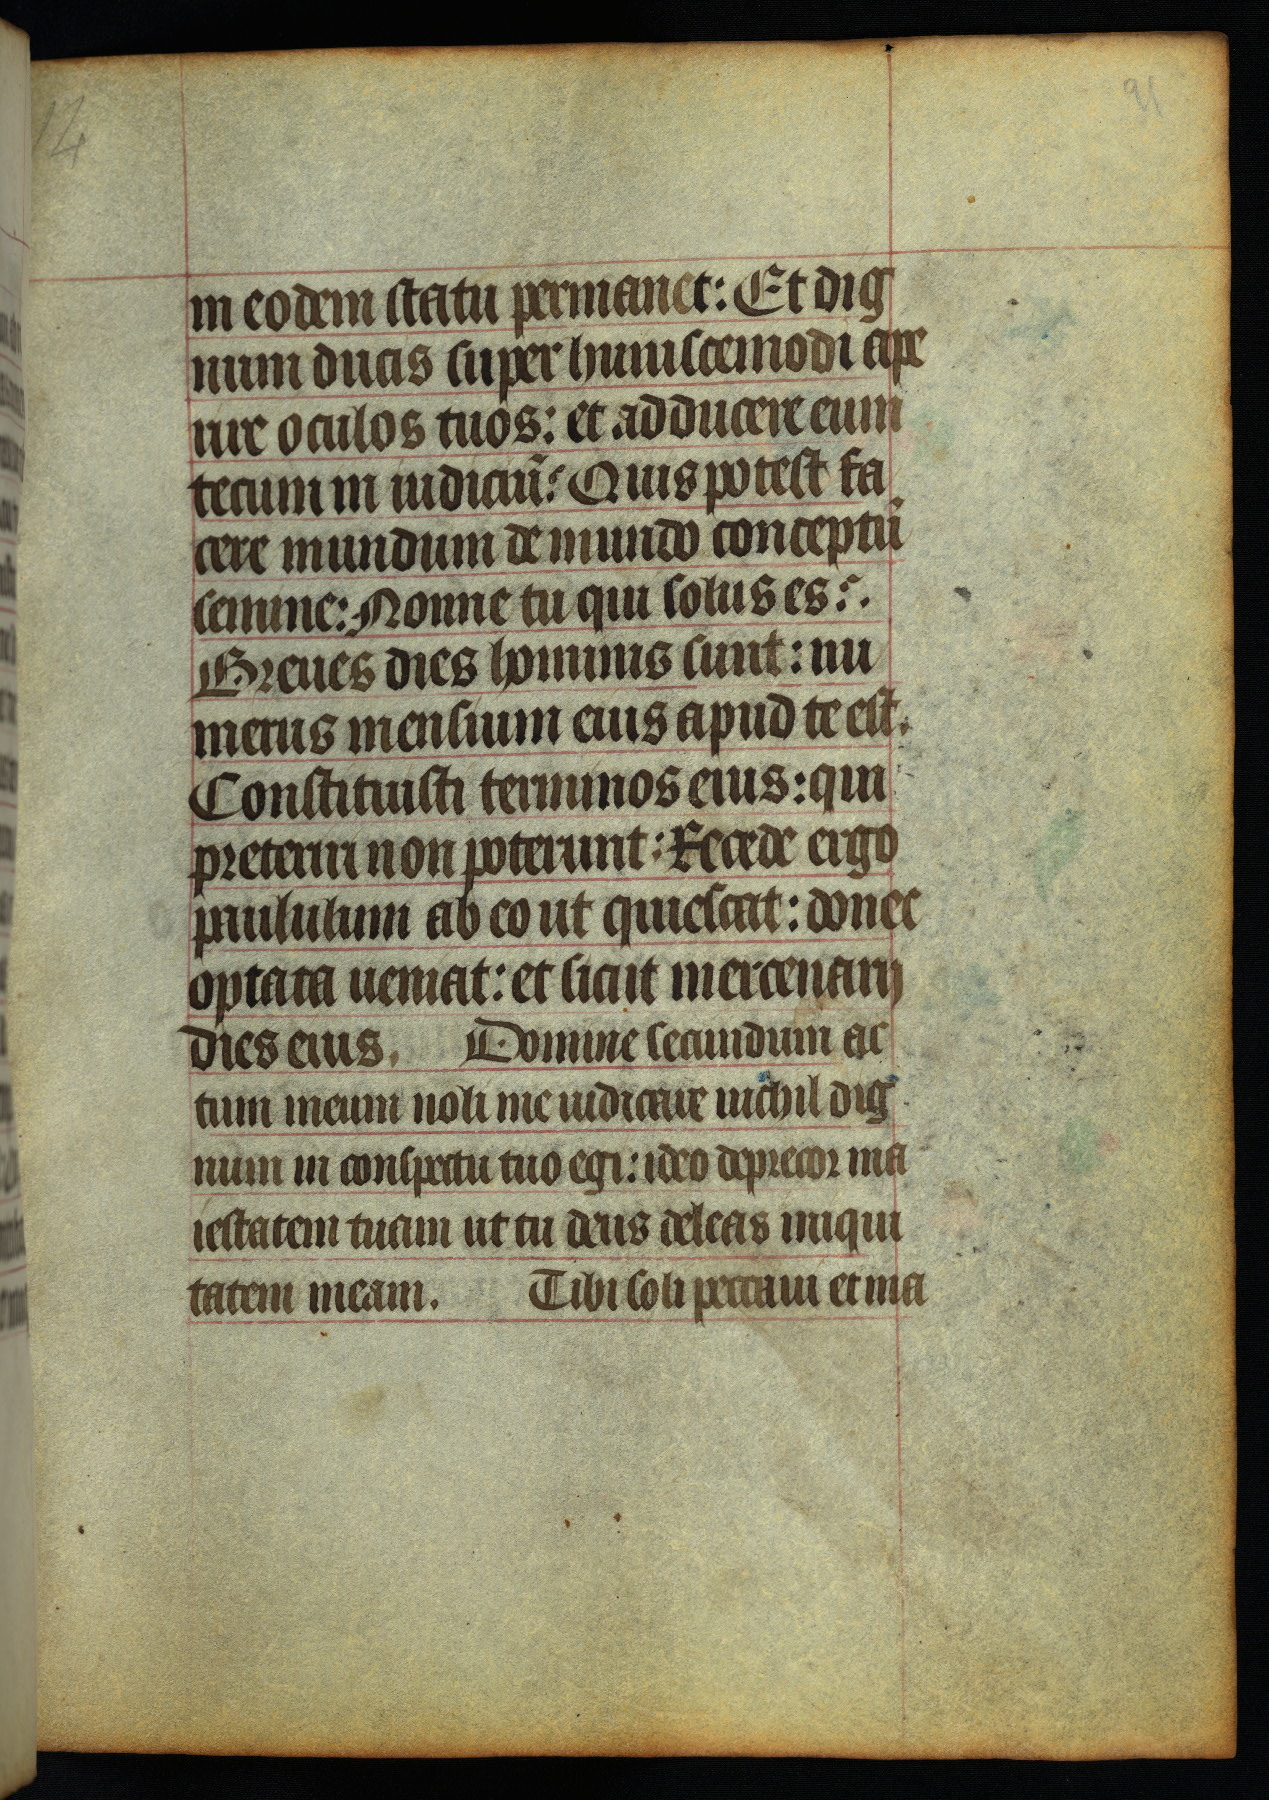 in eodem statu permanet: Et dig
num ducis super huiuscemodi ape
rire oculos tuos: et adducere eum
tecum in iudiciũ: Quis potest fa
cere mundum de mundo conceptũ
semine: Nonne tu qui solus es:.
Breues dies hominis sunt: nu
merus mensium eius apud te est.
Constituisti terminos eius: qui
preteriri non poterunt: Recede ergo
paululum ab eo ut quiescat: donec
optata ueniat: et sicut mercenarij
dies eius. Domine secundum ac
tum meum noli me iudicare nichil dig
num in conspectu tuo egi: ideo deprecor ma
iestatem tuam ut tu deus deleas iniqui
tatem meam. Tibi soli peccaui et ma